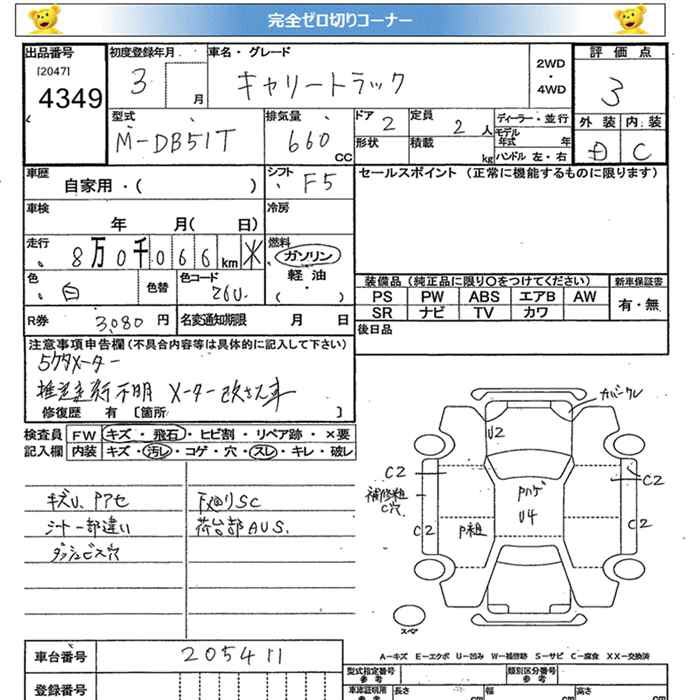 完全ゼロ切りコーナー
出品番号 初度登録年月 車名・グレード 2WD・4WD 評価点
[2047]
4349 3 月 キャリートラック 3
型式 排気量 ドア 定員 ディーラー・並行 外装 内装
M-DB51T 660 CC 2 2人 モデル年式 年 C
形状 積載 kg ハンドル 左・右
車歴 シフト セールスポイント(正常に機能するものに限ります)
自家用・( ) F5
車検 冷房
年 月( 日)
走行 燃料
8万0千066km ガソリン
軽油
色 色替 色コード ( )
白 26U 装備品(純正品に限り○をつけてください) 新車保証書
PS PW ABS エアB AW 有・無
SR ナビ TV カワ
R券 3,080円 名変通知期限 月 日 後日品
注意事項申告欄(不具合内容等は具体的に記入して下さい)
5ケタメーター
メーター改ざん車
修復歴 有 [箇所 ]
検査員 FW キズ・飛石・ヒビ割・リペア跡・×要
記入欄 内装 キズ・汚レ・コゲ・穴・スレ・キレ・破レ
カバークレ
U2
C2 C2
補修粗 Pハゲ
C穴 U4
C2 P粗 C2
キズU、Pアセ 下廻りSC
シート一部違い 荷台部AUS.
ダッシュビス穴
スペア
A-キズ E-エクボ U-凹み W-補修跡 S-サビ C-腐食 XX-交換済
車台番号 205411
型式指定番号 参考 類別区分番号 参考
登録番号 車庫証明用 参考 長さ cm 幅 cm 高さ cm